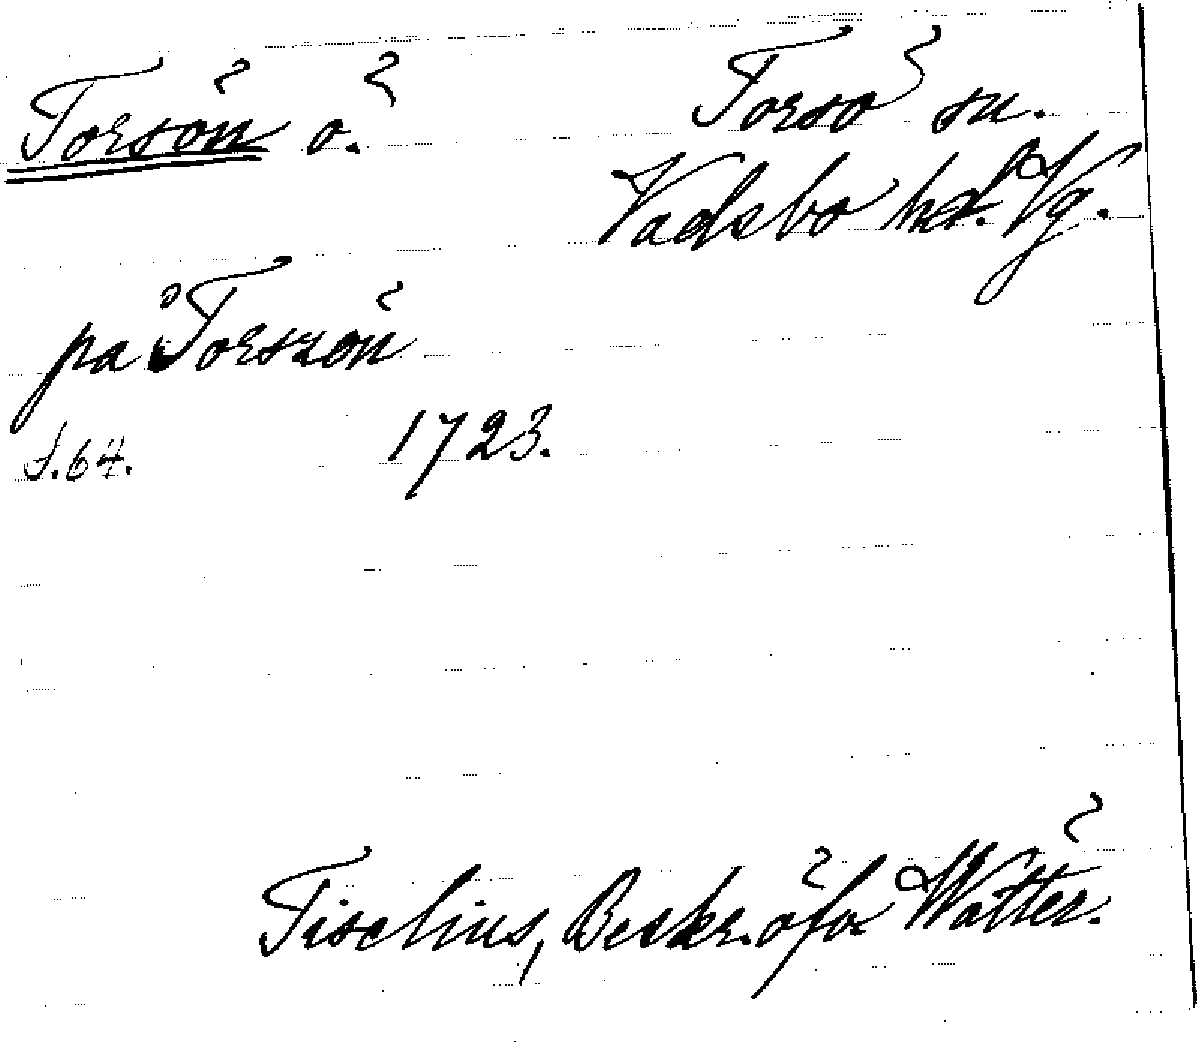 Torsön ö. Torsö sn.
Vadsbo hd. Vg.
på Torszön
S. 64. 1723.
Tiselius, Beskr. öfv Wätter.